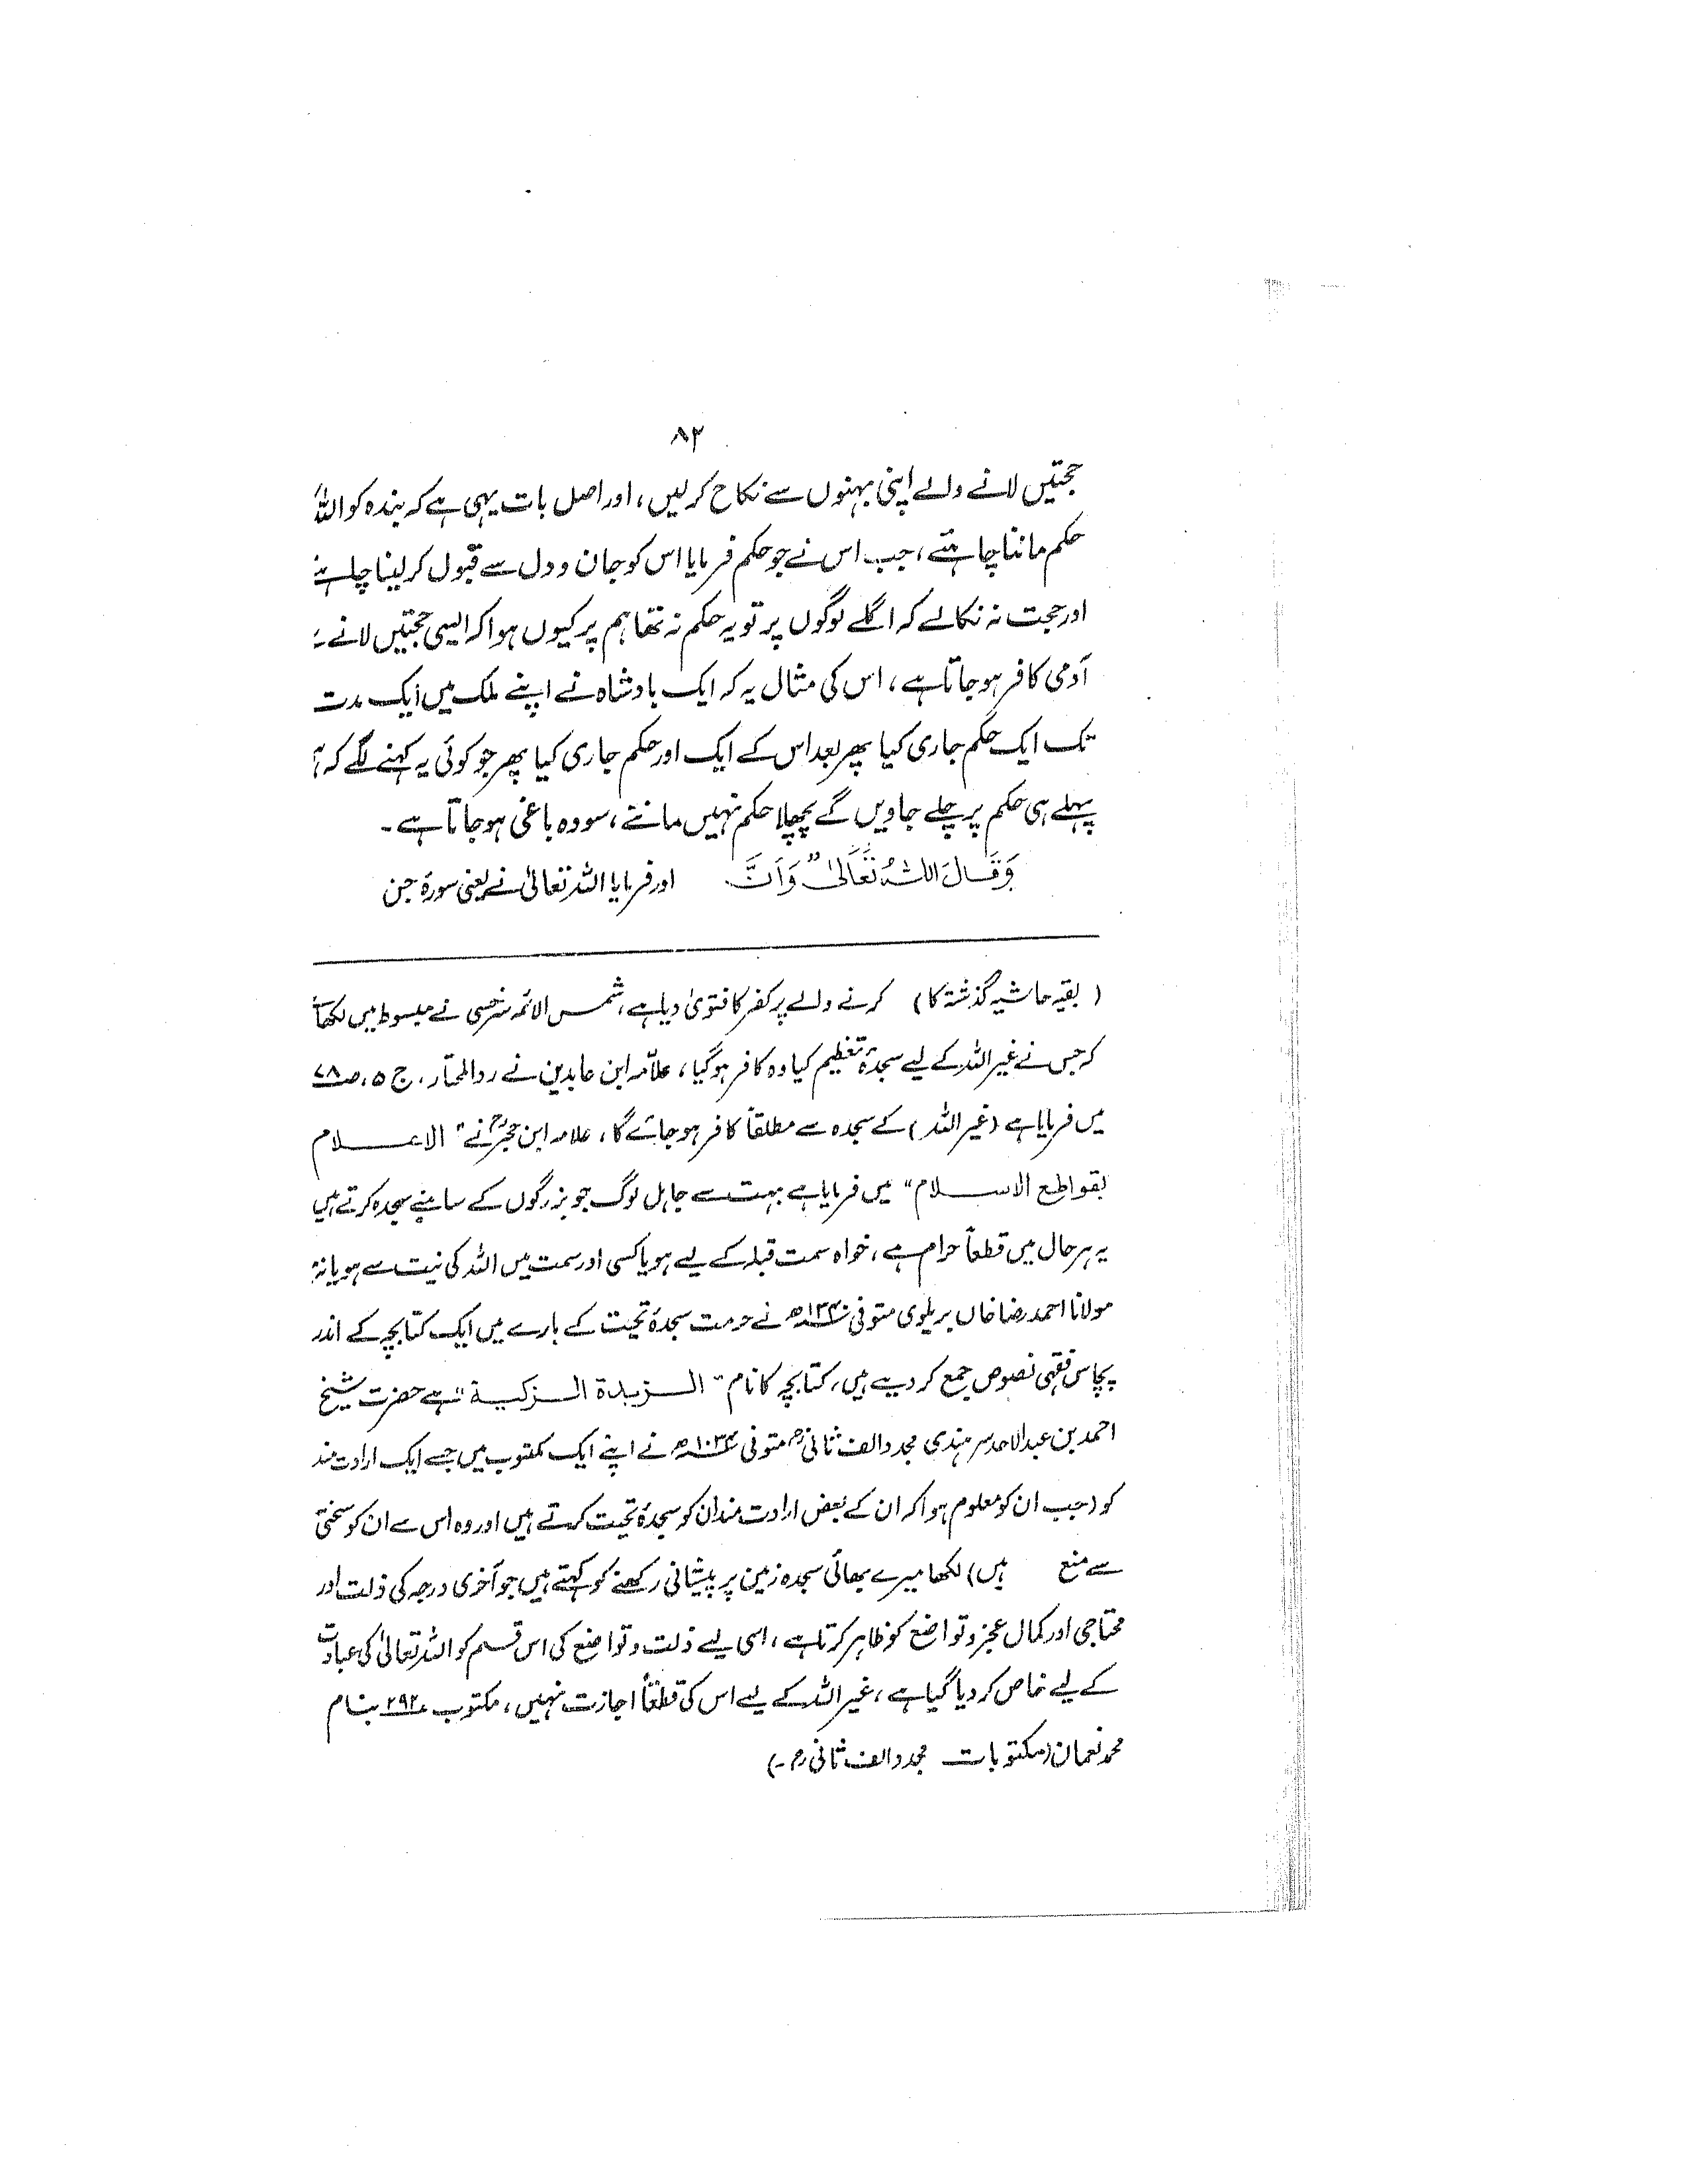 ۸۲
حجتیں لانے والے اپنی بہنوں سے نکاح کرلیں، اور اصل بات یہی ہے کہ بندہ کو اللہ
حکم ماننا چاہئے، جب اس نے جو حکم فرمایا اس کو جان و دل سے قبول کرلینا چاہئے
اور حجت نہ نکالے کہ اگلے لوگوں پر تو یہ حکم نہ تھا ہم پر کیوں ہوا کہ ایسی حجتیں لانے
آدمی کافر ہوجاتا ہے، اس کی مثال یہ کہ ایک بادشاہ نے اپنے ملک میں ایک مدت
تک ایک حکم جاری کیا پھر بعد اس کے ایک اور حکم جاری کیا پھر جو کوئی یہ کہنے لگے کہ
پہلے ہی حکم پر چلے جاویں گے پچھلا حکم نہیں مانتے، سو وہ باغی ہوجاتا ہے۔
وَقَالَ اللّٰہُ تَعَالٰی "وَاَنَّ اور فرمایا اللہ تعالیٰ نے یعنی سورۂ جن
(بقیہ حاشیہ گذشتہ کا) کرنے والے پر کفر کا فتویٰ دیا ہے، شمس الائمہ سرخسی نے مبسوط میں لکھا
کہ جس نے غیر اللہ کے لیے سجدۂ تعظیم کیا وہ کافر ہوگیا، علاّمہ ابن عابدین نے رد المحتار، ج ۵، ص
میں فرمایا ہے (غیر اللہ) کے سجدہ سے مطلقاً کافر ہوجائے گا، علامہ ابن حجرؒ نے "الاعلام
بقواطع الاسلام" میں فرمایا ہے بہت سے جاہل لوگ جو بزرگوں کے سامنے سجدہ کرتے ہیں
یہ ہر حال میں قطعاً حرام ہے، خواہ سمت قبلہ کے لیے ہو یا کسی اور سمت میں اللہ کی نیت سے ہو یا نہ
مولانا احمد رضا خاں بریلوی متوفی ۱۳۴۰ھ نے حرمت سجدۂ تحیت کے بارے میں ایک کتابچہ کے اندر
پچاس فقہی نصوص جمع کر دیے ہیں، کتابچہ کا نام "الزبدۃ الزکیۃ" ہے حضرت شیخ
احمد بن عبدالاحد سرہندی مجدد الف ثانیؒ متوفی ۱۰۳۴ھ نے اپنے ایک مکتوب میں جسے ایک ارادت مند
کو (جب ان کو معلوم ہوا کہ ان کے بعض ارادت مند ان کو سجدۂ تحیت کرتے ہیں اور وہ اس سے ان کو سختی
سے منع ہیں) لکھا میرے بھائی سجدہ زمین پر پیشانی رکھنے کو کہتے ہیں جو آخری درجہ کی ذلت اور
محتاجی اور کمال عجز و تواضع کو ظاہر کرتا ہے، اسی لیے ذلت و تواضع کی اس قسم کو اللہ تعالیٰ کی عبادت
کے لیے خاص کر دیا گیا ہے، غیر اللہ کے لیے اس کی قطعاً اجازت نہیں، مکتوب ۲۹۲ بنام
محمد نعمان (مکتوبات مجدد الف ثانیؒ۔)